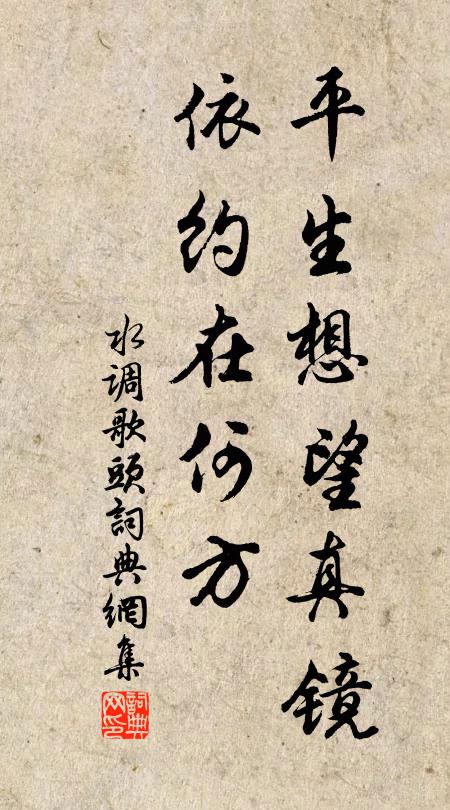 平生想望真镜
依约在何方
水调歌頭詞典網集
詞典网印